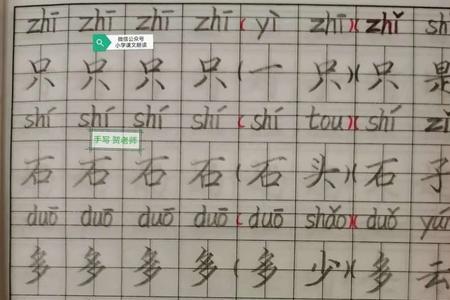 zhī zhī zhī zhī ( yì zhī ) ( zhǐ shì
微信公众号
小学课文朗读
只 只 只 只 ( 一 只 ) ( 只 是
shí shí shí shí ( shí tou ) ( shí zǐ
手写 贺老师
石 石 石 石 ( 石 头 ) ( 石 子
duō duō duō duō ( duō shǎo ) ( duō yún
多 多 多 多 ( 多 少 ) ( 多 云